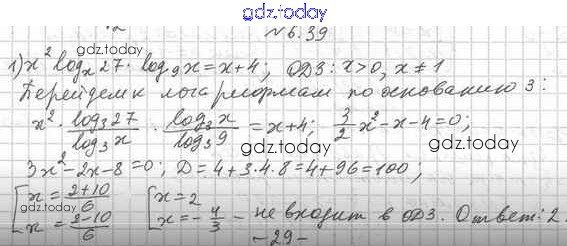 gdz.today
№6.39
gdz.today
1) x² logₓ27 · log₉x = x+4; ОДЗ: x>0, x≠1
Перейдем к логарифмам по основанию 3:
x² · log₃27/log₃x · log₃x/log₃9 = x+4; 3/2 x² - x - 4 = 0;
gdz.today
gdz.today
3x² - 2x - 8 = 0; D = 4 + 3·4·8 = 4 + 96 = 100;
[x = (2+10)/6 [x = 2
x = (2-10)/6 x = -4/3 - не входит в ОДЗ. Ответ: 2.
gdz.today
gdz.today
-29-